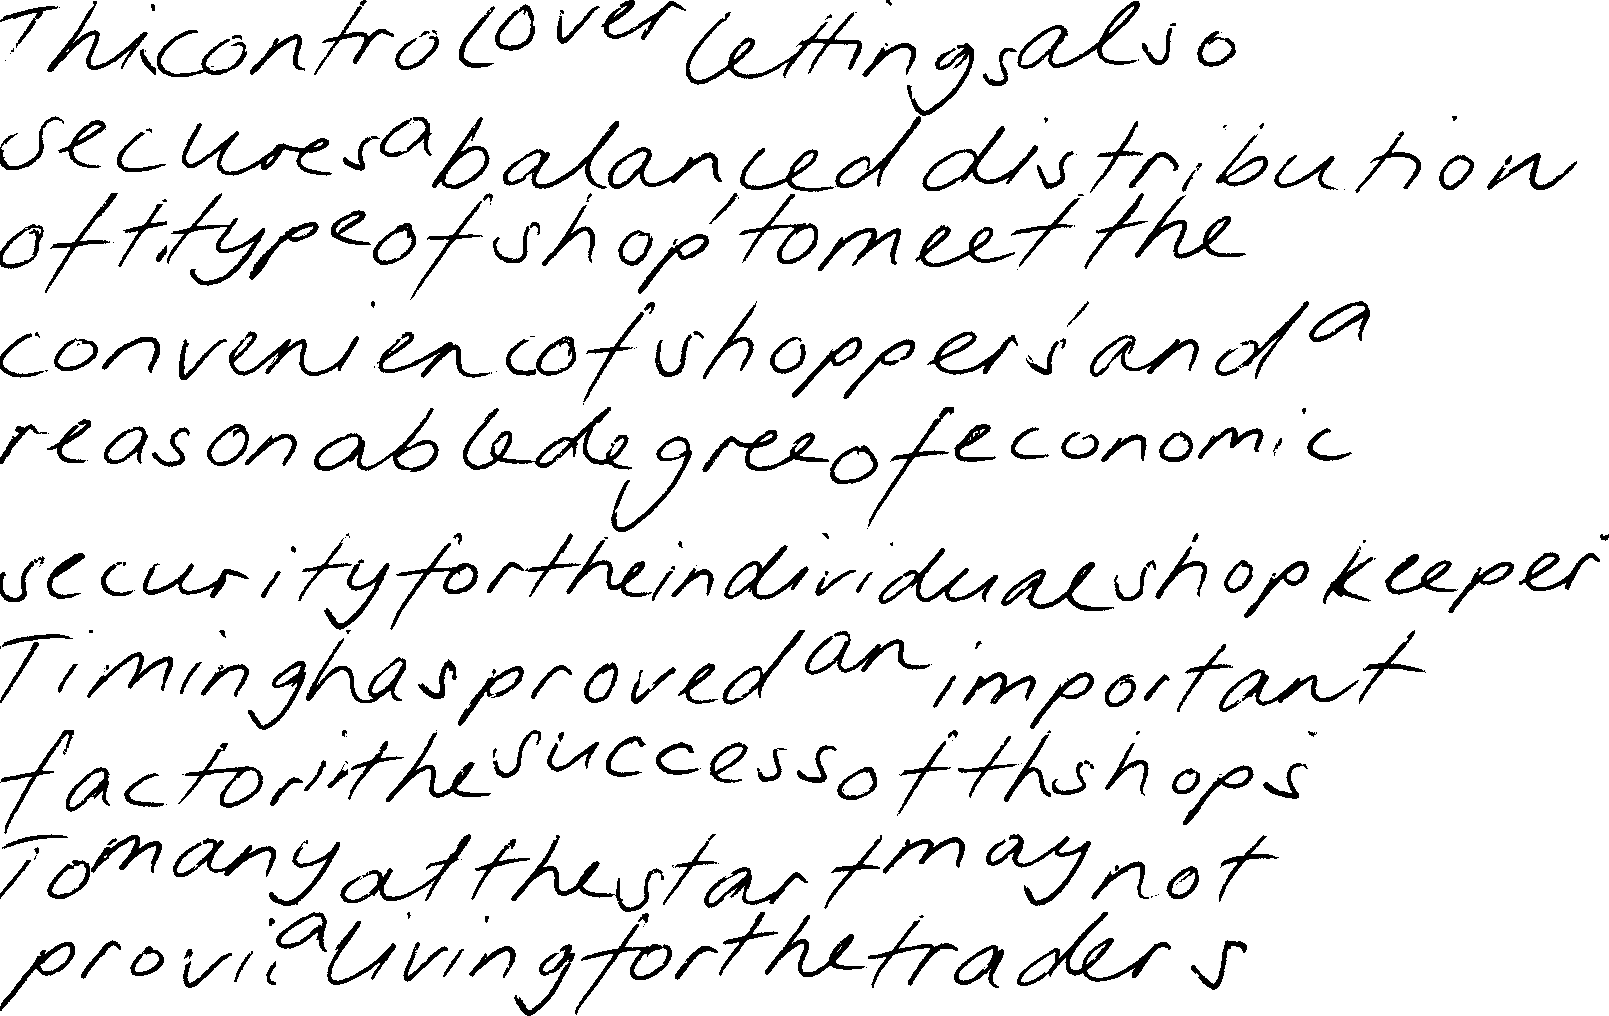 Thi control over lettings also
secures a balanced distribution
of t.type of shop' to meet the
convenienc of shoppers' and a
reasonable degree of economic
security for the individual shopkeeper.
Timing has proved an important
factor in the success of th shops.
To many at the start may not
provi. a living for the traders